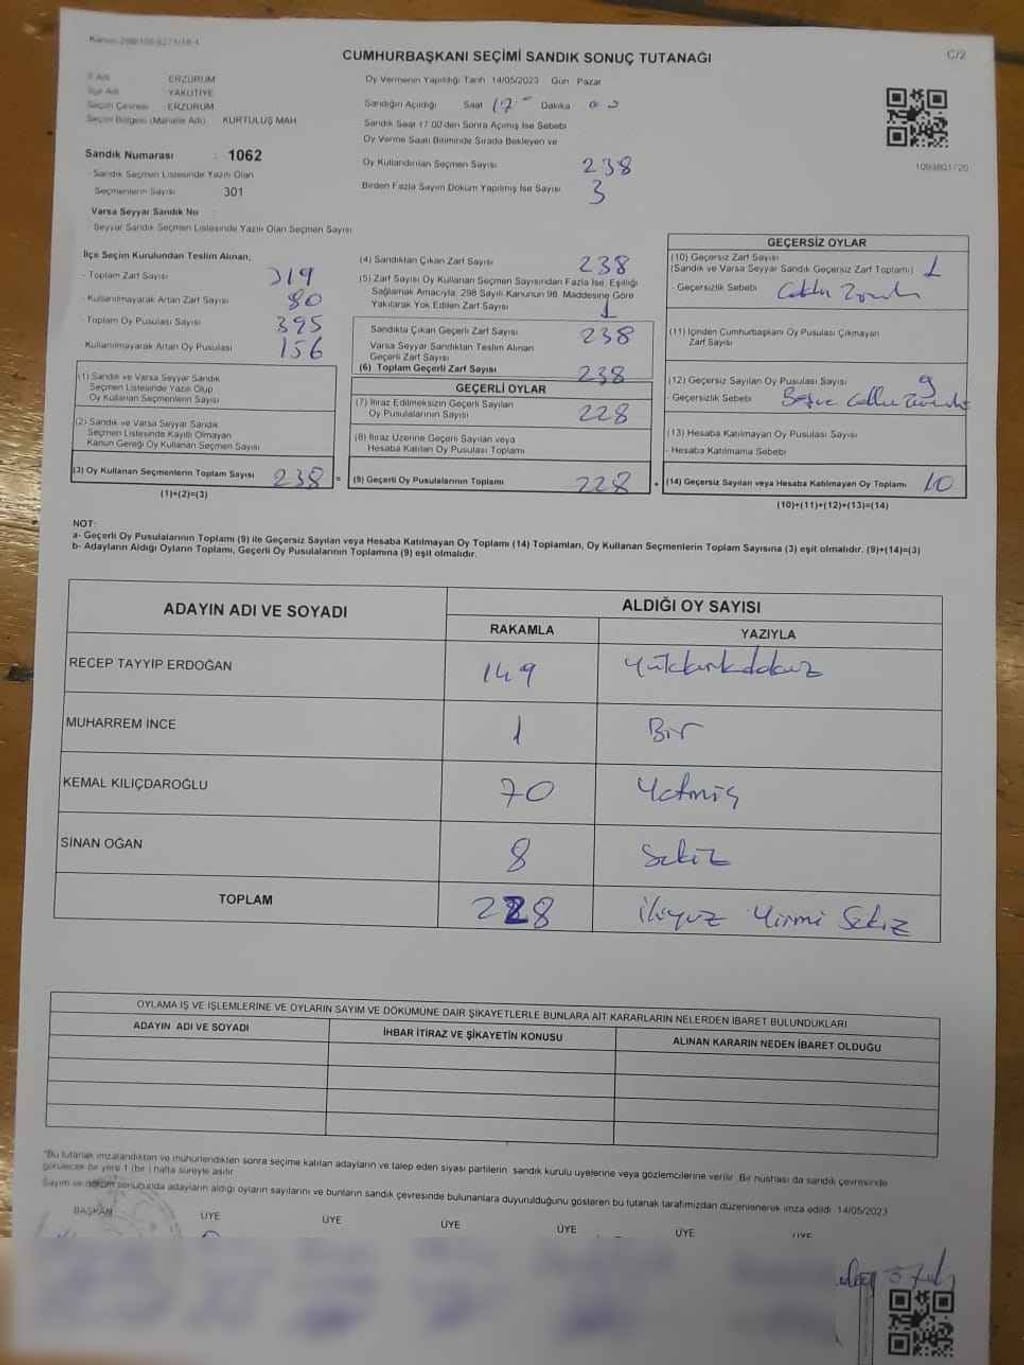 CUMHURBAŞKANI SEÇİMİ SANDIK SONUÇ TUTANAĞI
C/2
İl Adı ERZURUM
İlçe Adı YAKUTİYE
Seçim Çevresi : ERZURUM
Seçim Bölgesi (Mahalle Adı) KURTULUŞ MAH
Sandık Numarası : 1062
Sandık Seçmen Listesinde Yazılı Olan
Seçmenlerin Sayısı 301
Varsa Seyyar Sandık No
Seyyar Sandık Seçmen Listesinde Yazılı Olan Seçmen Sayısı
Oy Vermenin Yapıldığı Tarih 14/05/2023 Gün Pazar
Sandığın Açıldığı Saat 17 Dakika
Sandık Saat 17.00'den Sonra Açılmış İse Sebebi
Oy Verme Saati Bitiminde Sırada Bekleyen ve
Oy Kullandırılan Seçmen Sayısı 238
Birden Fazla Sayım Döküm Yapılmış İse Sayısı 3
İlçe Seçim Kurulundan Teslim Alınan,
- Toplam Zarf Sayısı 319
- Kullanılmayarak Artan Zarf Sayısı 80
- Toplam Oy Pusulası Sayısı 395
Kullanılmayarak Artan Oy Pusulası 156
(1) Sandık ve Varsa Seyyar Sandık
Seçmen Listesinde Yazılı Olup
Oy Kullanan Seçmenlerin Sayısı
(2) Sandık ve Varsa Seyyar Sandık
Seçmen Listesinde Kayıtlı Olmayan
Kanun Gereği Oy Kullanan Seçmen Sayısı
(3) Oy Kullanan Seçmenlerin Toplam Sayısı 238 =
(1)+(2)=(3)
(4) Sandıktan Çıkan Zarf Sayısı 238
(5) Zarf Sayısı Oy Kullanan Seçmen Sayısından Fazla İse, Eşitliği
Sağlamak Amacıyla, 298 Sayılı Kanunun 98. Maddesine Göre
Yakılarak Yok Edilen Zarf Sayısı 1
Sandıkta Çıkan Geçerli Zarf Sayısı 238
Varsa Seyyar Sandıktan Teslim Alınan
Geçerli Zarf Sayısı
(6) Toplam Geçerli Zarf Sayısı 238
GEÇERLİ OYLAR
(7) İtiraz Edilmeksizin Geçerli Sayılan
Oy Pusulalarının Sayısı 228
(8) İtiraz Üzerine Geçerli Sayılan veya
Hesaba Katılan Oy Pusulası Toplamı
(9) Geçerli Oy Pusulalarının Toplamı 228 +
GEÇERSİZ OYLAR
(10) Geçersiz Zarf Sayısı
(Sandık ve Varsa Seyyar Sandık Geçersiz Zarf Toplamı) 1
- Geçersizlik Sebebi
(11) İçinden Cumhurbaşkanı Oy Pusulası Çıkmayan
Zarf Sayısı
(12) Geçersiz Sayılan Oy Pusulası Sayısı 9
- Geçersizlik Sebebi
(13) Hesaba Katılmayan Oy Pusulası Sayısı
- Hesaba Katılmama Sebebi
(14) Geçersiz Sayılan veya Hesaba Katılmayan Oy Toplamı 10
(10)+(11)+(12)+(13)=(14)
NOT:
a- Geçerli Oy Pusulalarının Toplamı (9) ile Geçersiz Sayılan veya Hesaba Katılmayan Oy Toplamı (14) Toplamları, Oy Kullanan Seçmenlerin Toplam Sayısına (3) eşit olmalıdır. (9)+(14)=(3)
b- Adayların Aldığı Oyların Toplamı, Geçerli Oy Pusulalarının Toplamına (9) eşit olmalıdır.
ADAYIN ADI VE SOYADI
ALDIĞI OY SAYISI
RAKAMLA YAZIYLA
RECEP TAYYİP ERDOĞAN 149
MUHARREM İNCE 1 Bir
KEMAL KILIÇDAROĞLU 70 Yetmiş
SİNAN OĞAN 8 Sekiz
TOPLAM 228 ikiyüz Yirmi Sekiz
OYLAMA İŞ VE İŞLEMLERİNE VE OYLARIN SAYIM VE DÖKÜMÜNE DAİR ŞİKAYETLERLE BUNLARA AİT KARARLARIN NELERDEN İBARET BULUNDUKLARI
ADAYIN ADI VE SOYADI
İHBAR İTİRAZ VE ŞİKAYETİN KONUSU
ALINAN KARARIN NEDEN İBARET OLDUĞU
"Bu tutanak imzalandıktan ve mühürlendikten sonra seçime katılan adayların ve talep eden siyasi partilerin sandık kurulu üyelerine veya gözlemcilerine verilir. Bir nüshası da sandık çevresinde
görülecek bir yere 1 (bir) hafta süreyle asılır.
Sayım ve döküm sonucunda adayların aldığı oyların sayılarını ve bunların sandık çevresinde bulunanlara duyurulduğunu gösteren bu tutanak tarafımızdan düzenlenerek imza edildi. 14/05/2023
BAŞKAN ÜYE ÜYE ÜYE ÜYE ÜYE ÜYE